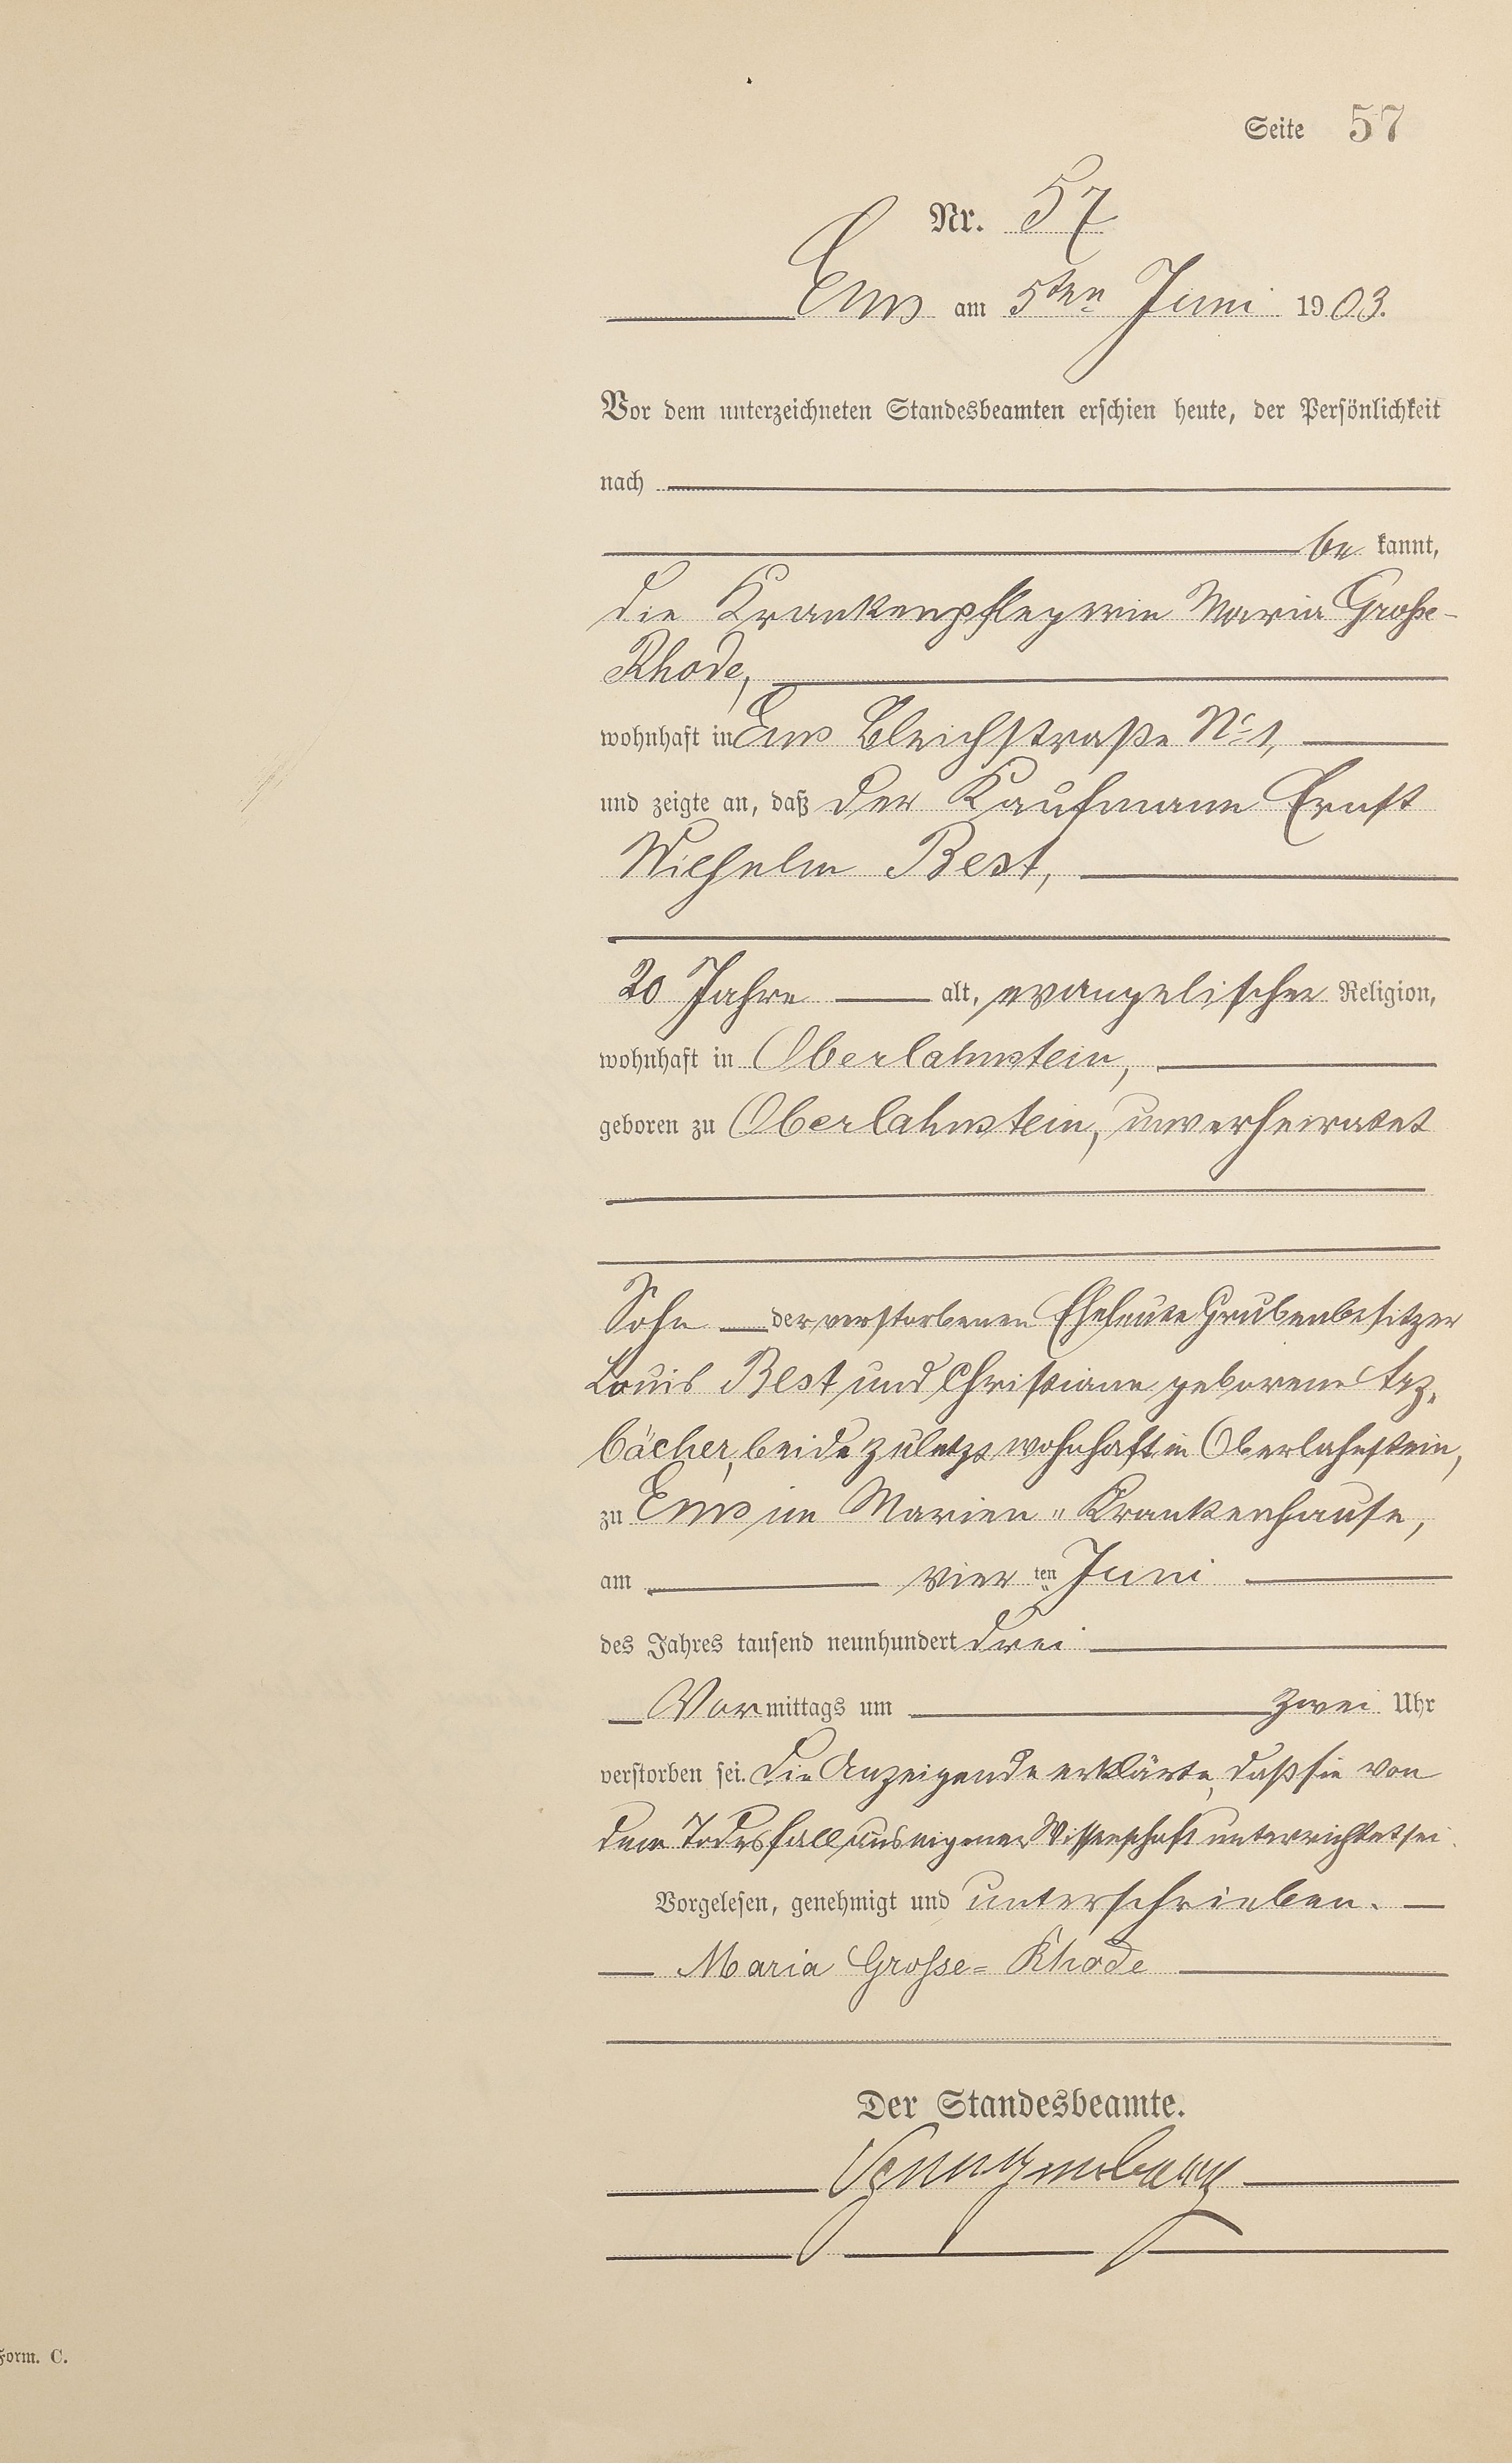 Seite 57
Nr. 57
Ems am 5ten Juni 1903.
Vor dem unterzeichneten Standesbeamten erschien heute, der Persönlichkeit
nach
be kannt,
die Krankenpflegerin Maria Große-
Rhode,
wohnhaft in Ems Bleichstraße No 1,
und zeigte an, daß der Kaufmann Ernst
Wilhelm Best,
20 Jahre alt, evangelischer Religion,
wohnhaft in Oberlahnstein,
geboren zu Oberlahnstein, unverheiratet
Sohn der verstorbenen Eheleute Grubenbesitzer
Louis Best und Christiane geborene
bächer, beide zuletzt wohnhaft in Oberlahnstein,
zu Ems im Marien-Krankenhause,
am vier ten Juni
des Jahres tausend neunhundert drei
Vormittags um zwei Uhr
verstorben sei. Die Anzeigende erklärte, daß sie von
dem Todesfall aus eigener Wissenschaft unterrichtet sei.
Vorgelesen, genehmigt und unterschrieben.
Maria Grosse-Rhode
Der Standesbeamte.
Form. C.